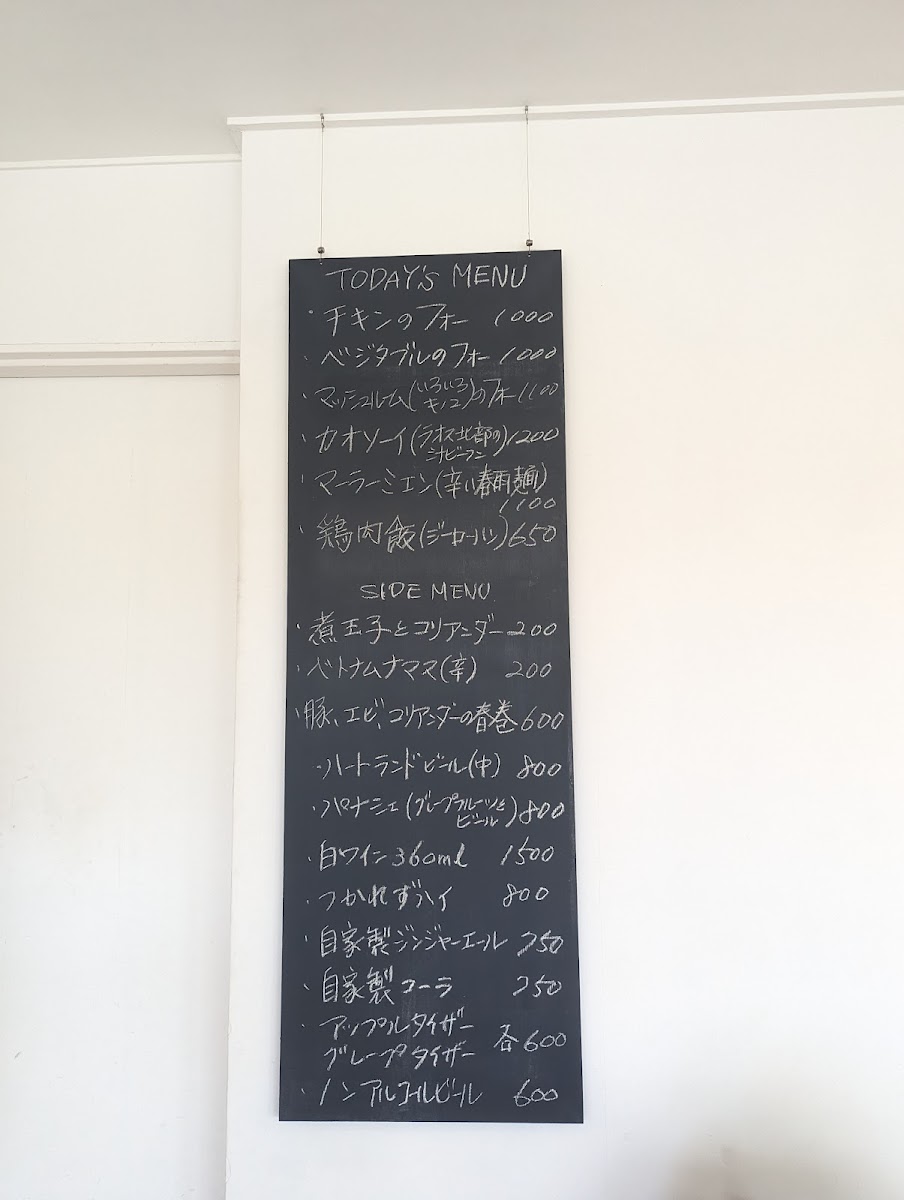 TODAY'S MENU
・チキンのフォー 1000
・ベジタブルのフォー 1000
・マッシュルーム(いろいろキノコ)のフォー 1100
・カオソーイ(ラオス北部の汁ビーフン) 1200
・マーラーミエン(辛い春雨麺)
1100
・鶏肉飯(ジーローハン) 650
SIDE MENU
・煮玉子とコリアンダー 200
・ベトナムナマス(辛) 200
・豚、エビ、コリアンダーの春巻 600
・ハートランドビール(中) 800
・パナシェ(グレープフルーツとビール) 800
・白ワイン360ml 1500
・つかれずハイ 800
・自家製ジンジャーエール 750
・自家製コーラ 750
・アップルタイザー
グレープタイザー 各600
・ノンアルコールビール 600